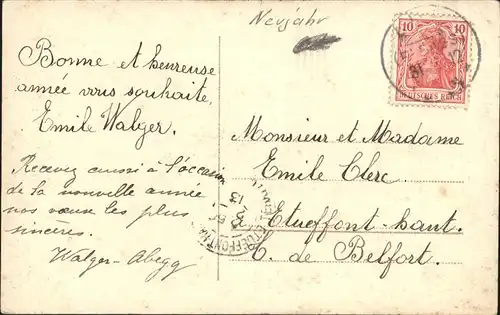 Neujahr
Bonne et heureuse
année vous souhaite,
Emile Walger.
Recevez aussi à l'occasion
de la nouvelle année
nos vœux les plus
sincères.
Walger-Abegg
10 10
DEUTSCHES REICH
Monsieur et Madame
Emile Clerc
Etueffont-haut.
T. de Belfort.
ETUEFFONT-HAUT